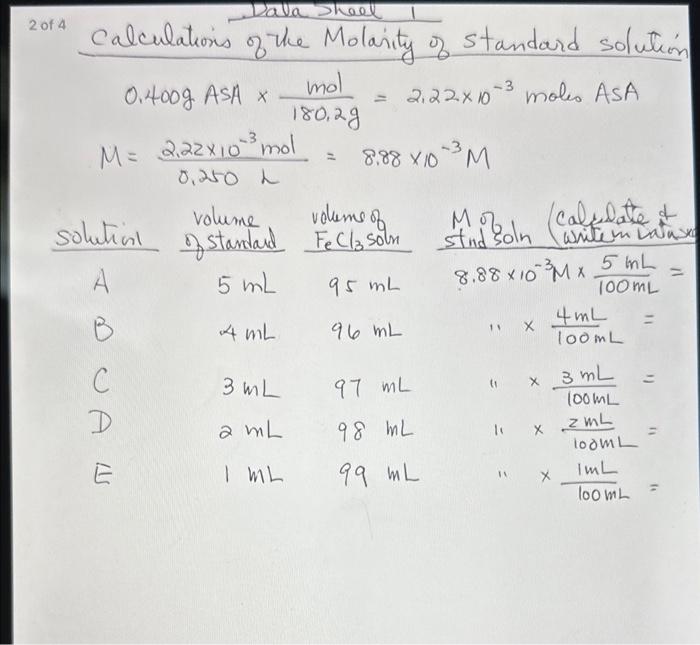 Data Sheet 1
2 of 4
Calculations of the Molarity of standard solution
0.400g ASA × mol / 180.2g = 2.22×10⁻³ moles ASA
M = 2.22×10⁻³ mol / 0.250 L = 8.88×10⁻³ M
solution volume of standard volume of FeCl₃ soln M of stnd soln (calculate & write in
A 5 mL 95 mL 8.88×10⁻³M × 5 mL / 100 mL =
B 4 mL 96 mL " × 4 mL / 100 mL =
C 3 mL 97 mL " × 3 mL / 100 mL =
D 2 mL 98 mL " × 2 mL / 100 mL =
E 1 mL 99 mL " × 1 mL / 100 mL =